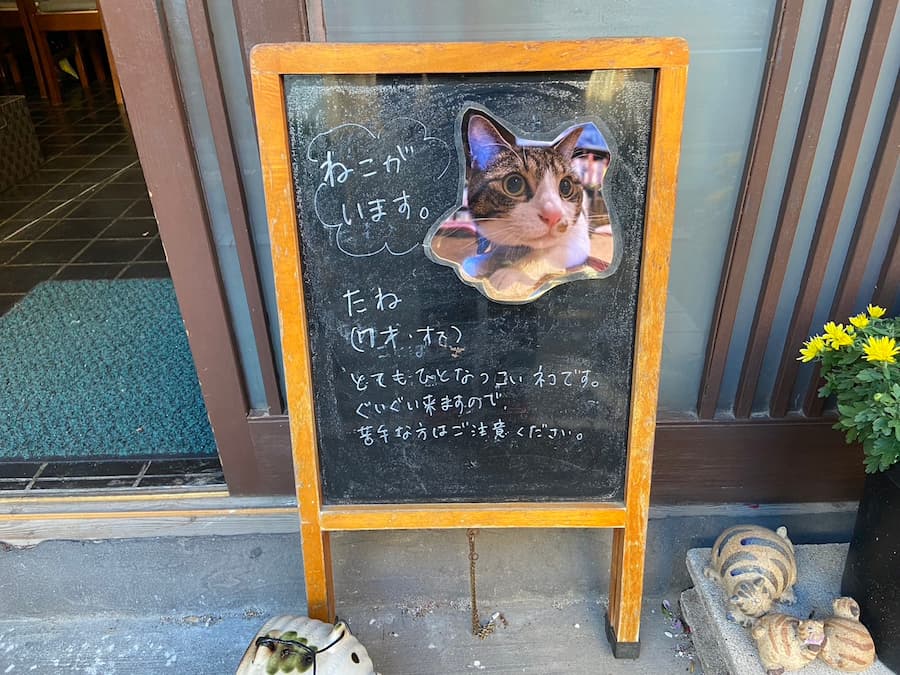 ねこが
います。
たね
(17才・オス)
とてもひとなつこいネコです。
ぐいぐい来ますので、
苦手な方はご注意ください。